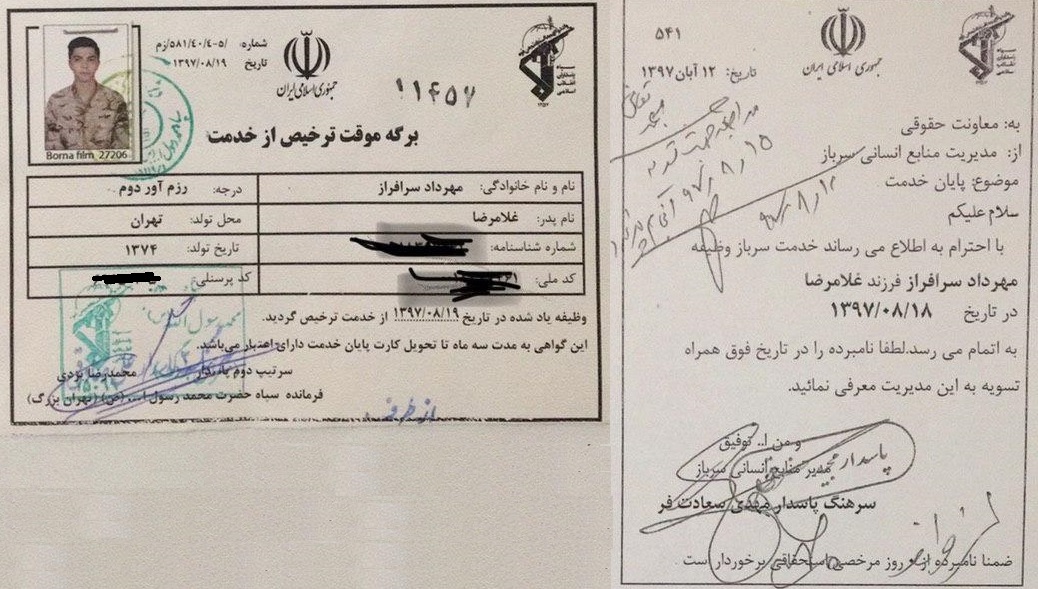 شماره: ۵-۵۸۱/۴۰/۴/زم
تاریخ ۱۳۹۷/۰۸/۱۹
جمهوری اسلامی ایران
Borna film_27206
برگه موقت ترخیص از خدمت
نام و نام خانوادگی: مهرداد سرافراز درجه: رزم آور دوم
نام پدر: غلامرضا محل تولد: تهران
شماره شناسنامه: تاریخ تولد: ۱۳۷۴
کد ملی: کد پرسنلی:
وظیفه یاد شده در تاریخ ۱۳۹۷/۰۸/۱۹ از خدمت ترخیص گردید.
این گواهی به مدت سه ماه تا تحویل کارت پایان خدمت دارای اعتبار می‌باشد.
سرتیپ دوم پاسدار محمدرضا یزدی
فرمانده سپاه حضرت محمد رسول الله (ص) (تهران بزرگ)
از طرف
۵۴۱
تاریخ: ۱۲ آبان ۱۳۹۷
جمهوری اسلامی ایران
سپاه پاسداران انقلاب اسلامی
به: معاونت حقوقی
از: مدیریت منابع انسانی سرباز
موضوع: پایان خدمت
سلام علیکم
با احترام به اطلاع می رساند خدمت سرباز وظیفه
مهرداد سرافراز فرزند غلامرضا
در تاریخ ۱۳۹۷/۰۸/۱۸
به اتمام می رسد.لطفا نامبرده را در تاریخ فوق همراه
تسویه به این مدیریت معرفی نمائید.
و من ا.. توفیق
مدیر منابع انسانی سرباز
پاسدار
سرهنگ پاسدار مهدی سعادت فر
ضمنا نامبرده از روز مرخصی استحقاقی برخوردار است